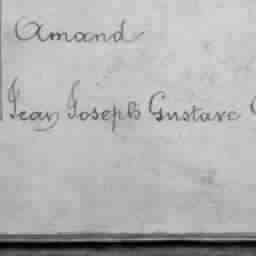 Amand
Jean Joseph Gustave